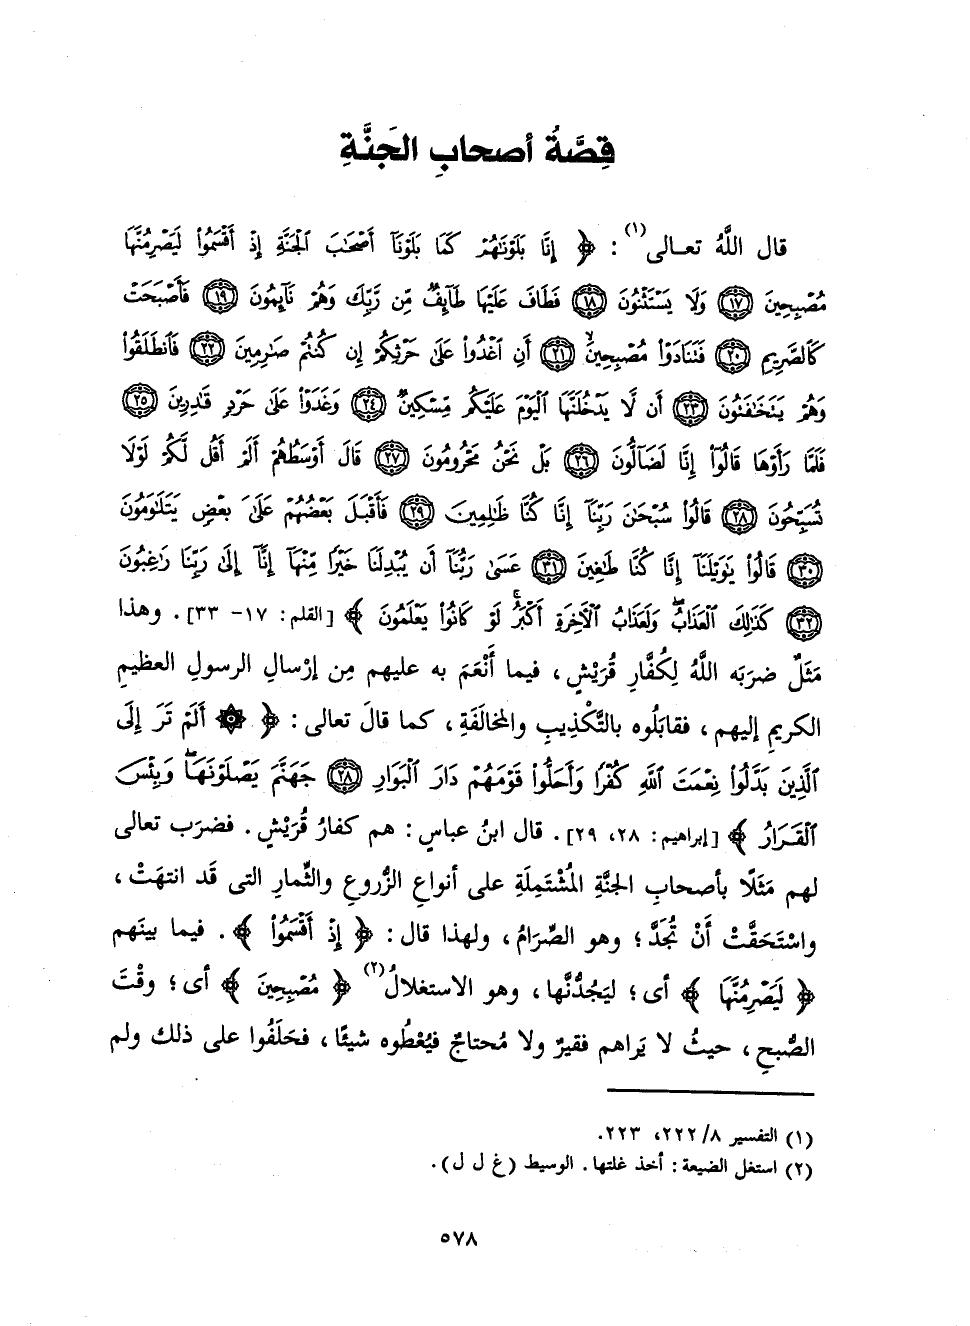 قِصَّةُ أصحابِ الجَنَّةِ
قال اللَّهُ تعالى(١): ﴿ إِنَّا بَلَوْنَٰهُمْ كَمَا بَلَوْنَآ أَصْحَٰبَ الْجَنَّةِ إِذْ أَقْسَمُوا۟ لَيَصْرِمُنَّهَا
مُصْبِحِينَ ﴿١٧﴾ وَلَا يَسْتَثْنُونَ ﴿١٨﴾ فَطَافَ عَلَيْهَا طَآئِفٌ مِّن رَّبِّكَ وَهُمْ نَآئِمُونَ ﴿١٩﴾ فَأَصْبَحَتْ
كَالصَّرِيمِ ﴿٢٠﴾ فَتَنَادَوْا۟ مُصْبِحِينَ ﴿٢١﴾ أَنِ اغْدُوا۟ عَلَىٰ حَرْثِكُمْ إِن كُنتُمْ صَٰرِمِينَ ﴿٢٢﴾ فَانطَلَقُوا۟
وَهُمْ يَتَخَٰفَتُونَ ﴿٢٣﴾ أَن لَّا يَدْخُلَنَّهَا الْيَوْمَ عَلَيْكُم مِّسْكِينٌ ﴿٢٤﴾ وَغَدَوْا۟ عَلَىٰ حَرْدٍ قَٰدِرِينَ ﴿٢٥﴾
فَلَمَّا رَأَوْهَا قَالُوٓا۟ إِنَّا لَضَآلُّونَ ﴿٢٦﴾ بَلْ نَحْنُ مَحْرُومُونَ ﴿٢٧﴾ قَالَ أَوْسَطُهُمْ أَلَمْ أَقُل لَّكُمْ لَوْلَا
تُسَبِّحُونَ ﴿٢٨﴾ قَالُوا۟ سُبْحَٰنَ رَبِّنَآ إِنَّا كُنَّا ظَٰلِمِينَ ﴿٢٩﴾ فَأَقْبَلَ بَعْضُهُمْ عَلَىٰ بَعْضٍ يَتَلَٰوَمُونَ
﴿٣٠﴾ قَالُوا۟ يَٰوَيْلَنَآ إِنَّا كُنَّا طَٰغِينَ ﴿٣١﴾ عَسَىٰ رَبُّنَآ أَن يُبْدِلَنَا خَيْرًا مِّنْهَآ إِنَّآ إِلَىٰ رَبِّنَا رَٰغِبُونَ
﴿٣٢﴾ كَذَٰلِكَ الْعَذَابُ وَلَعَذَابُ الْأَخِرَةِ أَكْبَرُ لَوْ كَانُوا۟ يَعْلَمُونَ ﴾ [القلم: ١٧- ٣٣]. وهذا
مَثَلٌ ضرَبَه اللَّهُ لِكُفَّارِ قُرَيْشٍ، فيما أَنْعَمَ به عليهم مِن إرْسالِ الرسولِ العظيمِ
الكريمِ إليهم، فقابَلُوه بالتَّكْذِيبِ والمخالَفَةِ، كما قالَ تعالى: ﴿ ۞ أَلَمْ تَرَ إِلَى
الَّذِينَ بَدَّلُوا۟ نِعْمَتَ اللَّهِ كُفْرًا وَأَحَلُّوا۟ قَوْمَهُمْ دَارَ الْبَوَارِ ﴿٢٨﴾ جَهَنَّمَ يَصْلَوْنَهَا وَبِئْسَ
الْقَرَارُ ﴾ [إبراهيم: ٢٨، ٢٩]. قال ابنُ عباسٍ: هم كفارُ قُرَيْشٍ. فضرَب تعالى
لهم مَثَلًا بأصحابِ الجنَّةِ المُشْتمِلَةِ على أنواعِ الزُّروعِ والثِّمارِ التى قَد انتهَتْ،
واسْتَحَقَّتْ أَنْ تُجَدَّ؛ وهو الصِّرَامُ، ولهذا قال: ﴿ إِذْ أَقْسَمُوا۟ ﴾. فيما بينَهم
﴿ لَيَصْرِمُنَّهَا ﴾ أى؛ ليَجُدُّنَّها، وهو الاستغلالُ(٢) ﴿ مُصْبِحِينَ ﴾ أى؛ وقْتَ
الصُّبحِ، حيثُ لا يَراهم فقيرٌ ولا مُحتاجٌ فيُعْطُوه شيئًا، فحَلَفُوا على ذلك ولم
(١) التفسير ٨/ ٢٢٢، ٢٢٣.
(٢) استغل الضيعة: أخذ غلتها. الوسيط (غ ل ل).
٥٧٨